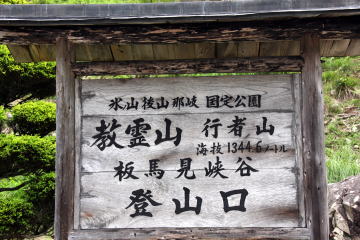 氷山後山那岐 国定公園
教霊山 行者山
海抜1344.6メートル
板馬見峡谷
登山口